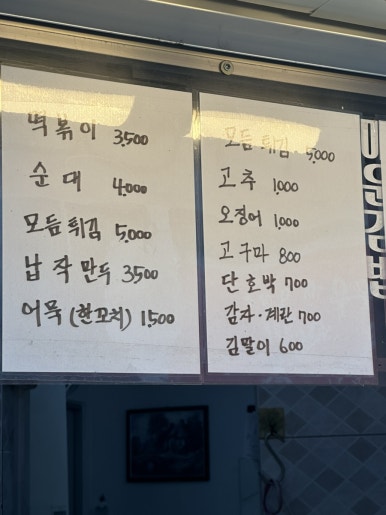 떡볶이 3,500
순대 4,000
모듬튀김 5,000
납작만두 3,500
어묵 (한꼬치) 1,500
모듬튀김 · 5,000
고추 1,000
오징어 1,000
고구마 800
단호박 700
감자·계란 700
김말이 600
김밥